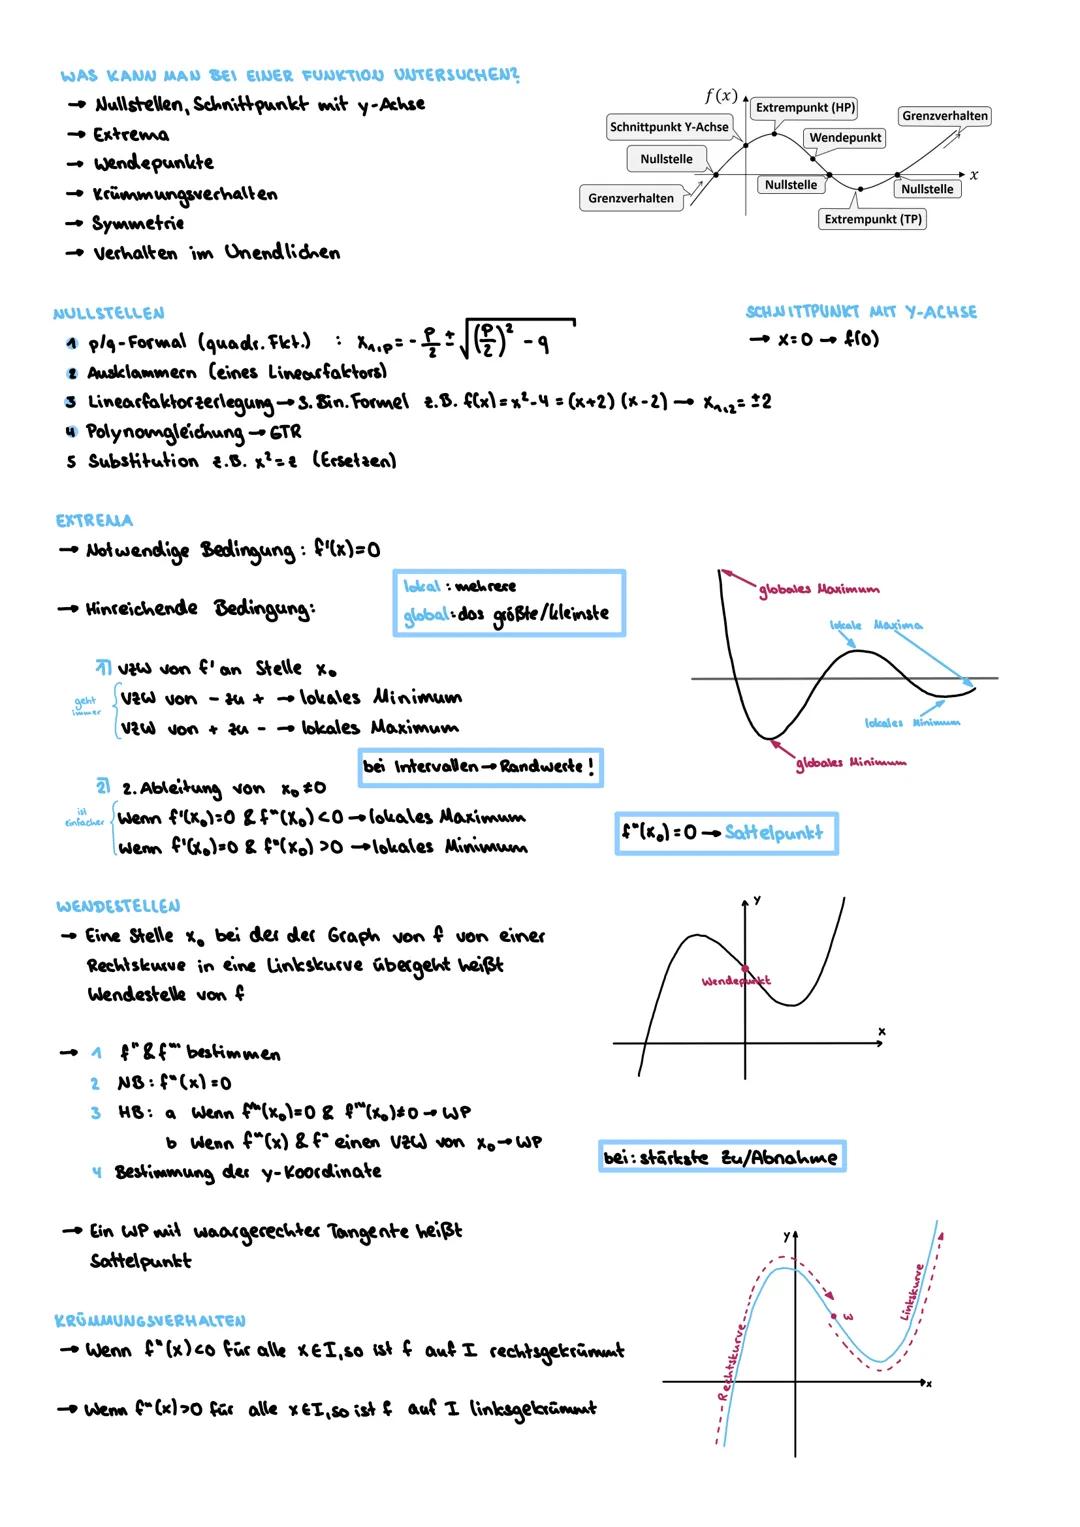 WAS KANN MAN BEI EINER FUNKTION UNTERSUCHEN?
→ Nullstellen, Schnittpunkt mit y-Achse
→ Extrema
→ Wendepunkte
→ Krümmungsverhalten
→ Symmetrie
→ Verhalten im Unendlichen
f(x)
Extrempunkt (HP)
Grenzverhalten
Schnittpunkt Y-Achse
Wendepunkt
Nullstelle
x
Nullstelle
Nullstelle
Grenzverhalten
Extrempunkt (TP)
NULLSTELLEN
1 p/q-Formal (quadr. Fkt.) : x₁,p = - p/2 ± √((p/2)² - q)
2 Ausklammern (eines Linearfaktors)
3 Linearfaktorzerlegung → 3. Bin. Formel z.B. f(x) = x²-4 = (x+2) (x-2) → x₁,₂ = ±2
4 Polynomgleichung → GTR
5 Substitution z.B. x² = z (Ersetzen)
SCHNITTPUNKT MIT Y-ACHSE
→ x=0 → f(0)
EXTREMA
→ Notwendige Bedingung : f'(x)=0
→ Hinreichende Bedingung:
lokal : mehrere
global: das größte/kleinste
1) VZW von f' an Stelle x₀
geht immer
VZW von - zu + → lokales Minimum
VZW von + zu - → lokales Maximum
bei Intervallen → Randwerte !
2) 2. Ableitung von x₀ ≠0
ist einfacher
Wenn f'(x₀)=0 & f"(x₀) <0 → lokales Maximum
Wenn f'(x₀)=0 & f"(x₀) >0 → lokales Minimum
f"(x₀) = 0 → Sattelpunkt
globales Maximum
lokale Maxima
lokales Minimum
globales Minimum
WENDESTELLEN
→ Eine Stelle x₀ bei der der Graph von f von einer
Rechtskurve in eine Linkskurve übergeht heißt
Wendestelle von f
→ 1 f" & f"' bestimmen
2 NB: f"(x) =0
3 HB: a Wenn f"(x₀)=0 & f"'(x₀)≠0 → WP
b Wenn f"(x) & f" einen VZW von x₀ → WP
4 Bestimmung der y-Koordinate
y
Wendepunkt
x
bei: stärkste Zu/Abnahme
→ Ein WP mit waargerechter Tangente heißt
Sattelpunkt
KRÜMMUNGSVERHALTEN
→ Wenn f"(x)<0 für alle x∈I, so ist f auf I rechtsgekrümmt
→ Wenn f"(x)>0 für alle x∈I, so ist f auf I linksgekrümmt
y
Rechtskurve
Linkskurve
x